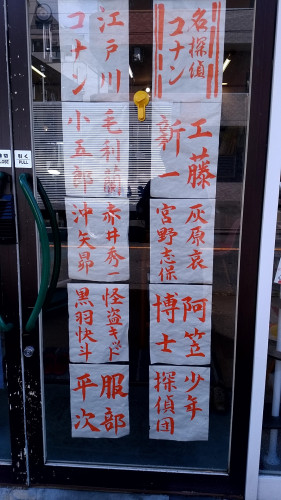 名探偵
コナン
工藤
新一
灰原哀
宮野志保
阿笠
博士
少年
探偵団
江戸川
コナン
毛利蘭
小五郎
赤井秀一
沖矢昴
怪盗キッド
黒羽快斗
服部
平次
引く
PULL